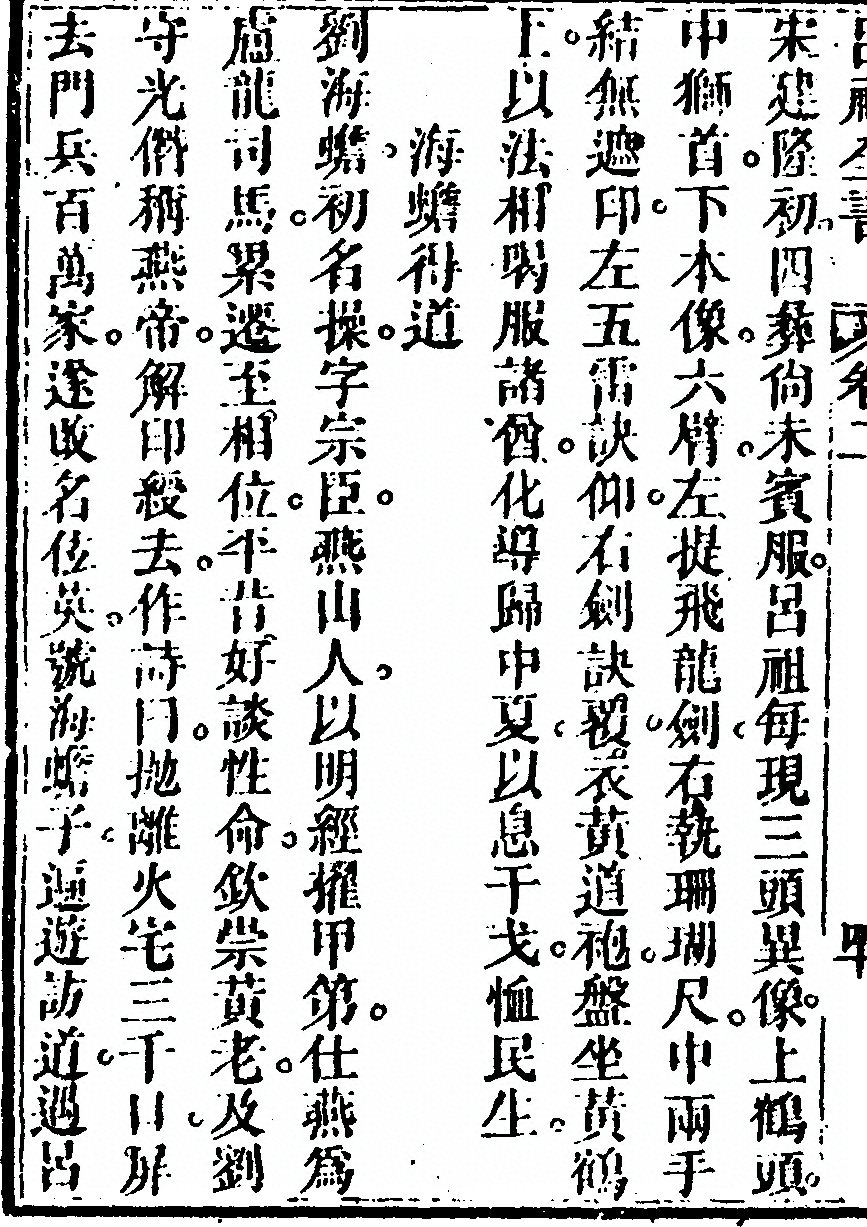 呂祖全書　卷二
宋建隆初。四彝尙未賓服。呂祖每現三頭異像。上鶴頭。
中獅首。下本像。六臂。左提飛龍劍。右執珊瑚尺。中兩手
結無遮印。左五雷訣仰。右劍訣覆。衣黃道袍。盤坐黃鶴
上。以法相喝服諸酋。化導歸中夏。以息干戈。恤民生。
海蟾得道
劉海蟾。初名操。字宗臣。燕山人。以明經擢甲第。仕燕爲
盧龍司馬。累遷至相位。平昔好談性命。欽崇黃老。及劉
守光僭稱燕帝。解印綬去。作詩曰。拋離火宅三千口。屏
去門兵百萬家。遂改名位英。號海蟾子。遍遊訪道。過呂